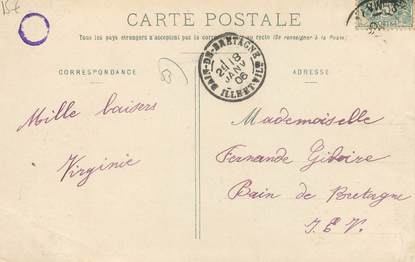 15€
CARTE POSTALE
Tous les pays étrangers n'acceptent pas la correspondance au recto (Se renseigner à la Poste)
CORRESPONDANCE
ADRESSE
BAIN-DE-BRETAGNE
21 18
JANV
06
ILLE-ET-VILAINE
Mille baisers
Virginie
Mademoiselle
Fernande
Bain de Bretagne
I. & V.